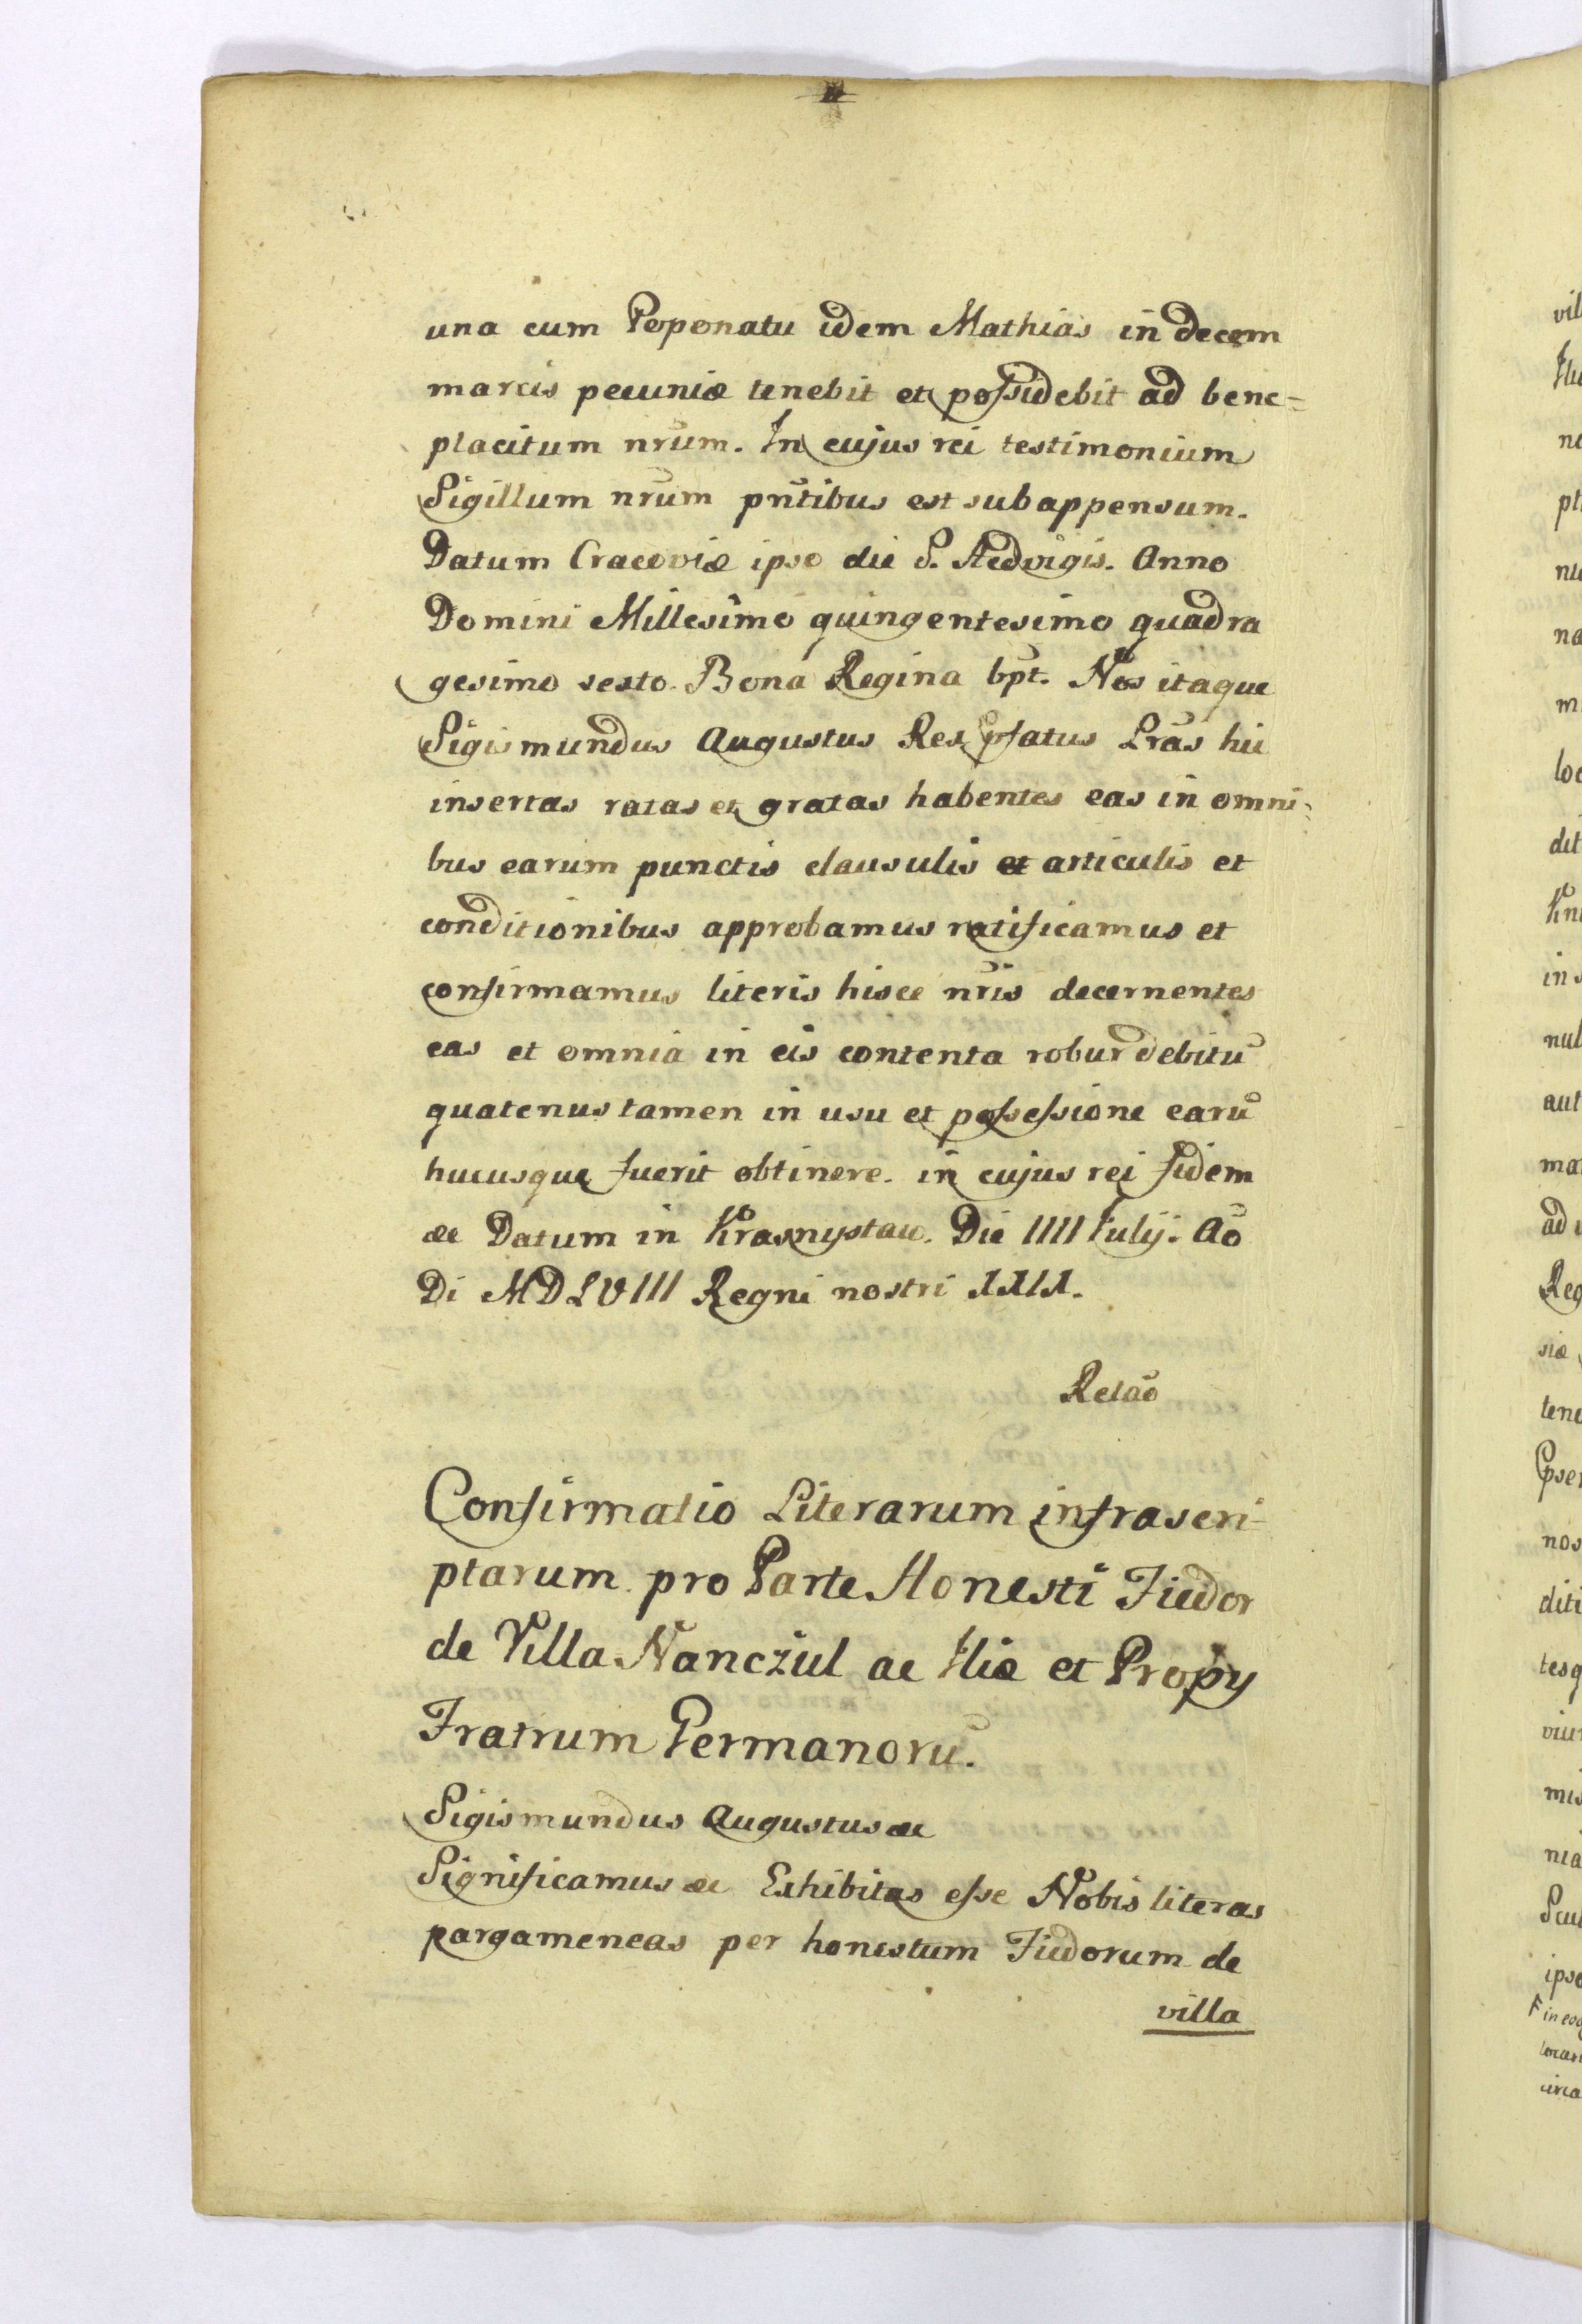 una cum Poponatu idem Mathias in decem
marcis pecuniæ tenebit et possidebit ad bene=
placitum nr̄um. In cujus rei testimonium
Sigillum nr̄um pn̄tibus est subappensum.
Datum Cracoviæ ipso die S. Hedvigis. Anno
Domini Millesimo quingentesimo quadra
gesimo sexto. Bona Regina spt. Nos itaque
Sigismundus Augustus Rex pfatus Lrās hic
insertas ratas et gratas habentes eas in omni=
bus earum punctis clausulis et articulis et
conditionibus approbamus ratificamus et
confirmamus literis hisce nr̄is decernentes
eas et omnia in eis contenta robur debitū
quatenus tamen in usu et possessione earū
hucusque fuerit obtinere. in cujus rei fidem
&c Datum in Krasnystaw. Die IIII Julij. Aō
Di MDLVIII Regni nostri XXIX.
Relaō
Confirmatio Literarum infrascri=
ptarum pro Parte Honesti Fiedor
de Villa Nanczul ac Iliæ et Propy
Fratrum Germanorū.
Sigismundus Augustus &c
Significamus &c Exhibitas esse Nobis literas
pargameneas per honestum Fiedorum de
villa